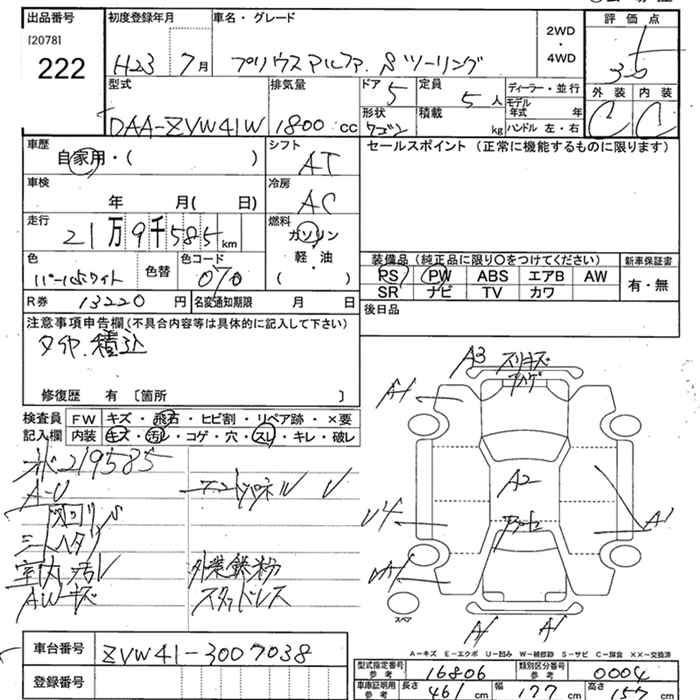 出品番号
[2078]
222
初度登録年月
H23 7月
車名・グレード
プリウスアルファ Sツーリング
2WD
・
4WD
評価点
3.5
外装 内装
C C
型式
DAA-ZVW41W
排気量
1800 cc
ドア 5
定員 5人
形状 ワゴン
積載 kg
ディーラー・並行
モデル年式 年
ハンドル 左・右
車歴
自家用・( )
シフト
AT
セールスポイント (正常に機能するものに限ります)
車検
年 月( 日)
冷房
AC
走行
21万9千585km
燃料
ガソリン
軽・油
( )
色
パールホワイト
色替
色コード
070
装備品 (純正品に限り○をつけてください)
PS PW ABS エアB AW
SR ナビ TV カワ
新車保証書
有・無
R券 13220円
名変通知期限 月 日
後日品
注意事項申告欄 (不具合内容等は具体的に記入して下さい)
タイヤ積込
修復歴 有 〔箇所 〕
検査員 FW キズ・飛石・ヒビ割・リペア跡・×要
記入欄 内装 キズ・汚レ・コゲ・穴・スレ・キレ・破レ
219585
A-U
エンドパネル U
シートヘタリ
室内汚レ
外装鉄粉
AWキズ
スタッドレス
A3 スリキズ
ハゲ
A1
A2
U4
A1
A1
A1
スペア
A-キズ E-エクボ U-凹み W-補修跡 S-サビ C-腐食 ××-交換済
車台番号 ZVW41-3007038
登録番号
型式指定番号 参考 16806
類別区分番号 参考 0004
車庫証明用 参考 長さ 461 cm 幅 177 cm 高さ 157 cm